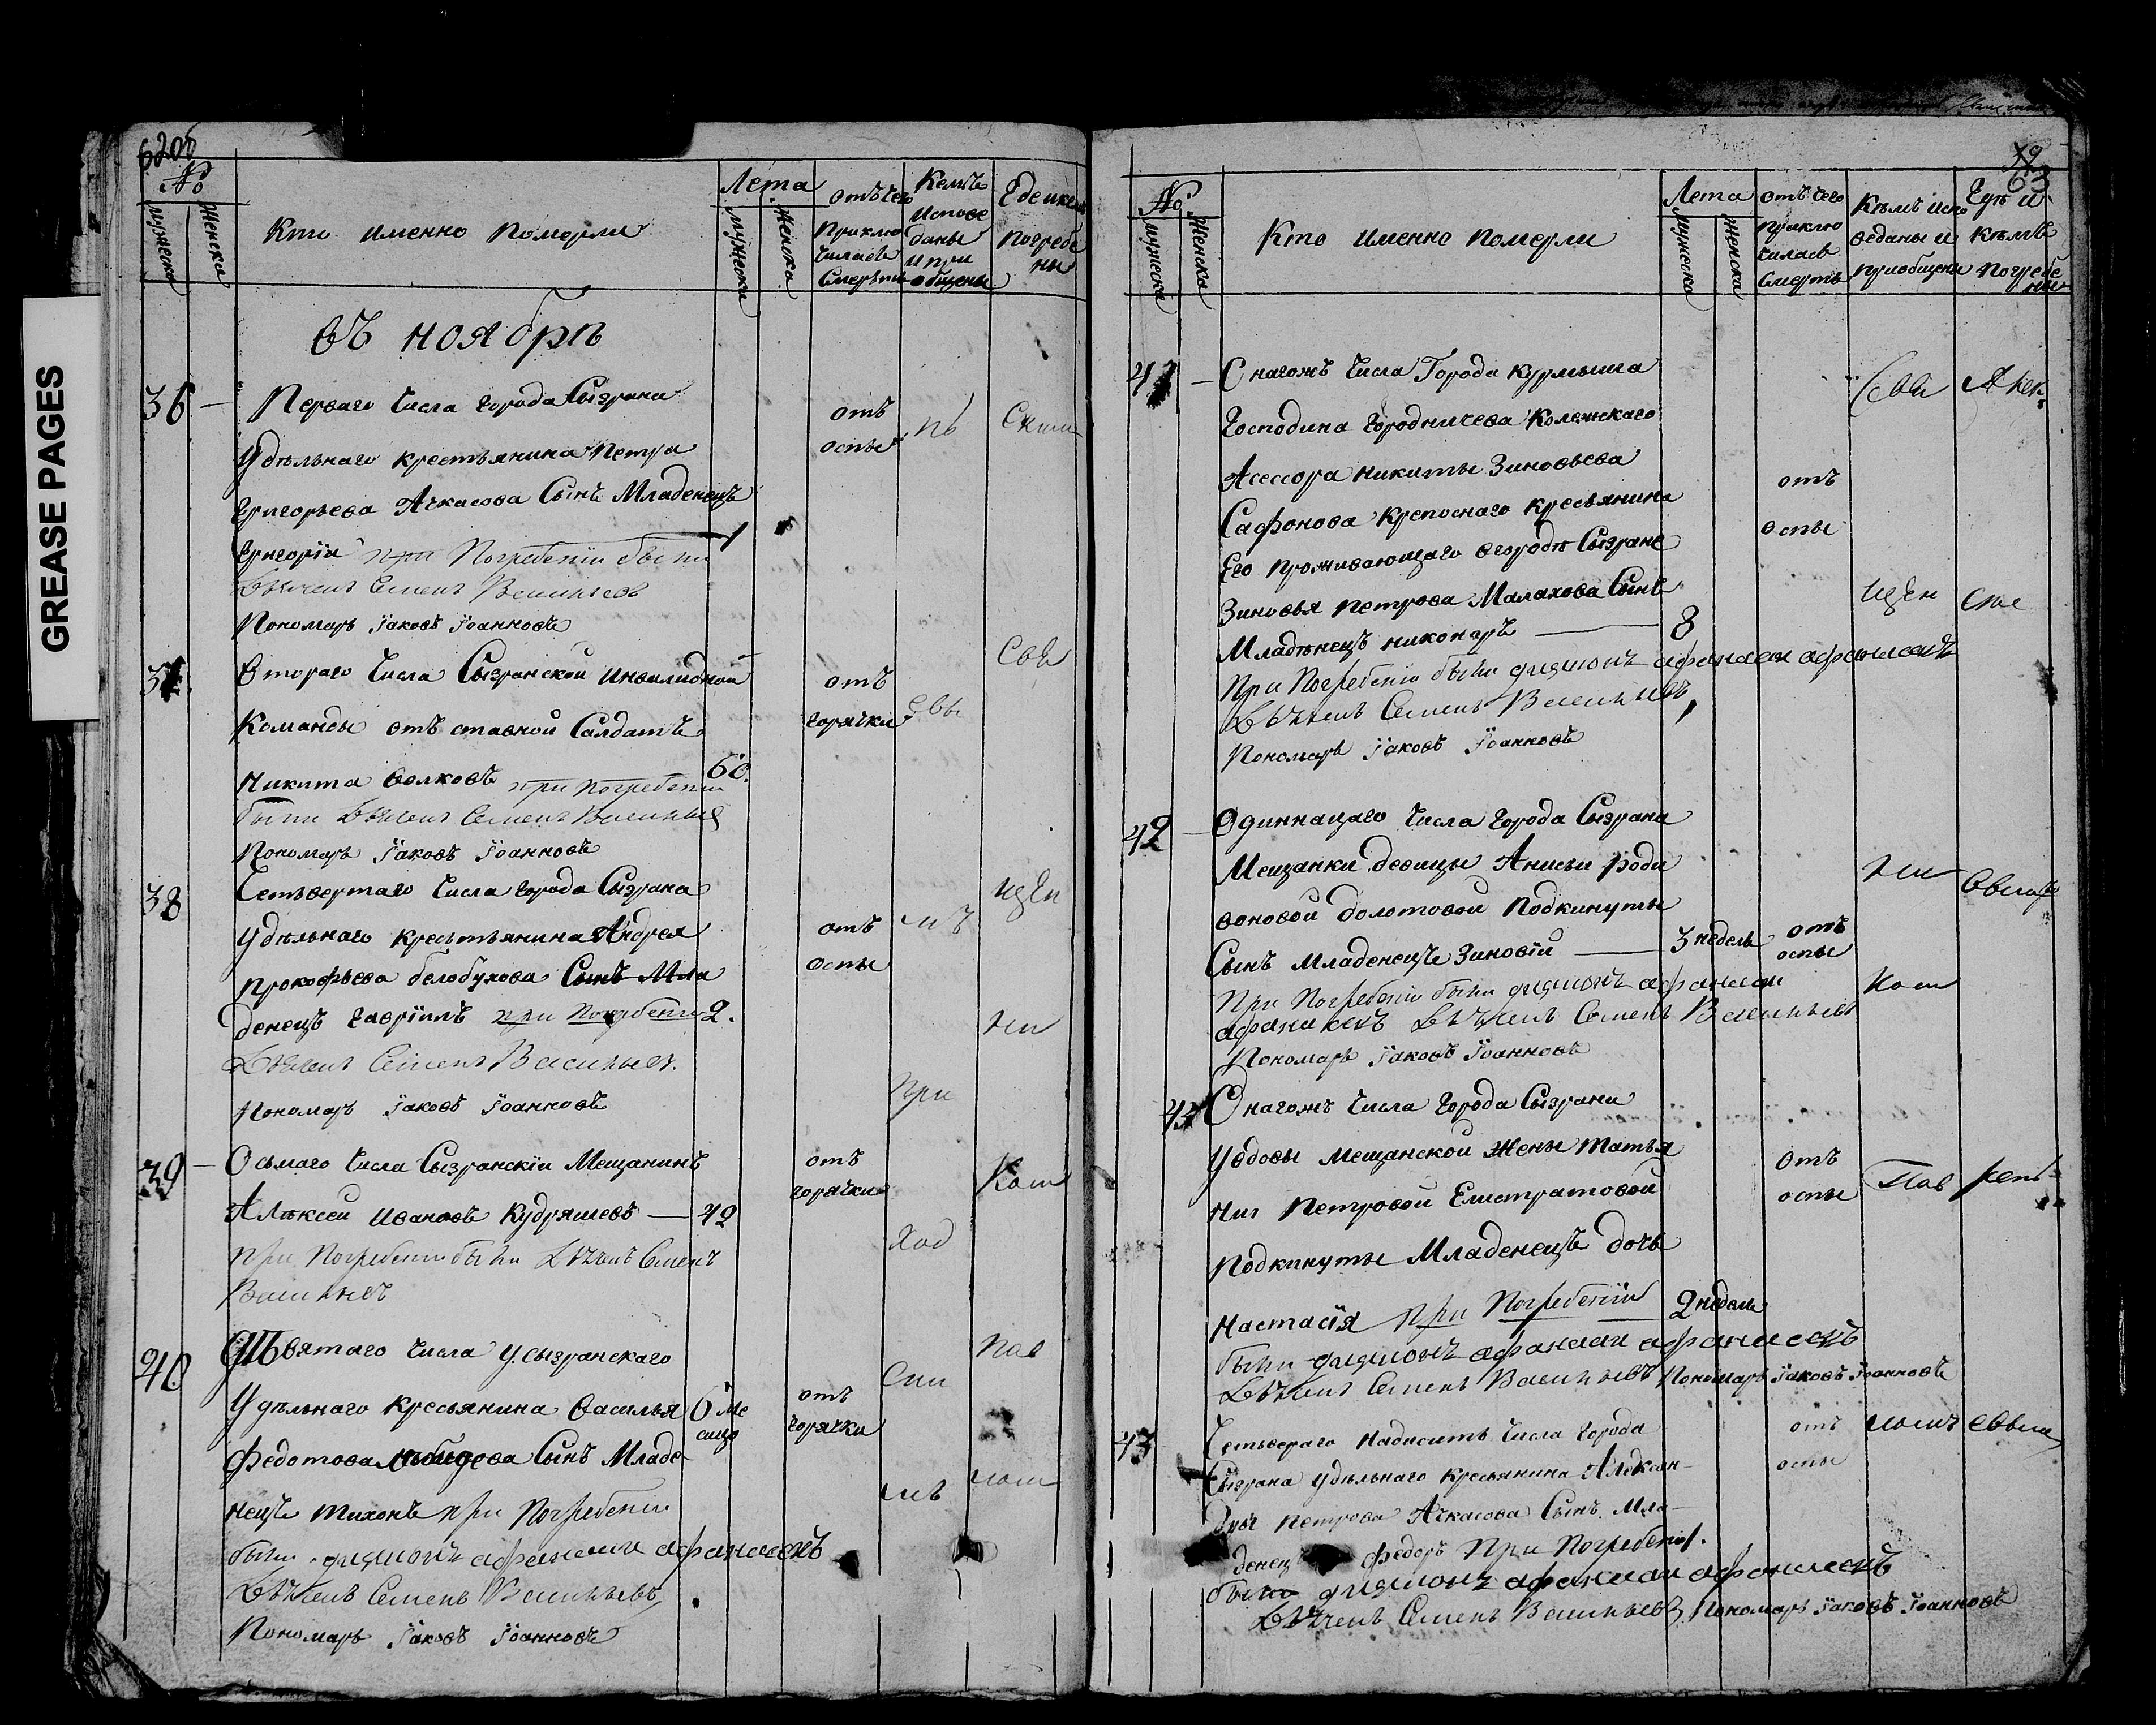 GREASE PAGES
№
мужеска
женска
Кто именно померли
Лета
мужеска
женска
отъ чего
приклю
чилась
Смерть
Кемъ
испове
даны
и при
общены
Где и кем
погребе
ны
въ ноябрѣ
36
Перваго числа города Сызрана
Удѣльнаго крестьянина Петра
Григорьева Ачкасова Сынъ Младенецъ
Григорїи при Погребенїи были
1
отъ
оспы
Дьячекъ Семенъ Васильевъ
Пономарь Їаковъ Їоанновъ
37
Втораго числа Сызранской инвалидной
Команды отъ ставной Салдатъ
Никита Волковъ при погребенїи
60.
отъ
горячки
были Дьячекъ Семенъ Васильевъ
Пономарь Їаковъ Їоанновъ
38
Четьвертаго числа города Сызрана
Удѣльнаго крестьянина Андрея
Прокофьева белобухова Сынъ Мла
денецъ Гаврїилъ при Погребенїи
2.
отъ
оспы
Дьячекъ Семенъ Васильевъ.
Пономарь Їаковъ Їоанновъ
39
Осьмаго числа Сызранскїи Мещанинъ
Алѣксеи Ивановъ Кудряшевъ — 42
отъ
горячки
при Погребенїи были Дьячекъ Семенъ
Васильевъ
40
Девятаго числа у. сызранскаго
Удѣльнаго кресьянина Василья
6 ме
сицо
отъ
горячки
Федотова Сынъ Младе
нецъ Тихонъ при Погребенїи
были дияконъ афанасии афанасевъ
Дьячекъ Семенъ Васильевъ
Пономарь Їаковъ Їоанновъ
63
№
мужеска
женска
Кто именно померли
Лета
мужеска
женска
отъ чего
приклю
чилась
Смерть
Кѣмъ испо
веданы и
приобщены
Гдѣ и
кѣмъ
погребе
ны
41
Снагожъ числа Города Курмыша
Господина городничева Колежскаго
Асессора Никиты Зиновьева
Сафонова крепоснаго кресьянина
Его проживающаго вгородѣ Сызране
Зиновья Петрова Малахова Сынъ
Младѣнецъ Никоноръ — 8
отъ
оспы
При Погребенїи были дияконъ афанасии афанасевъ
Дьячекъ Семенъ Васильевъ,
Пономарь Їаковъ Їоанновъ
42
Одиннацаго числа города Сызрана
Мещанки девицы Анисьи Роди
воновой долотовой Подкинуты
Сынъ Младенецъ Зиновїй — 3 недель
отъ
оспы
При Погребенїи были дияконъ афанасии
афанасевъ Дьячекъ Семенъ Васильевъ
Пономарь Їаковъ Їоанновъ
Снагожъ числа города Сызрани
Увдовы мещанской жены Татья
ны Петровой Елистратовой
Подкинуты Младенецъ дочь
Настасїя при Погребенїи
2 недель
отъ
оспы
были дияконъ афанасии афанасевъ
Дьячекъ Семенъ Васильевъ Пономарь Їаковъ Їоанновъ
43
Четьвераго надисять числа города
Сызрана удѣльнаго кресьянина Алексан-
дры Петрова Ачкасова Сынъ Мла-
денецъ федоръ При Погребенїи 1.
отъ
оспы
были дияконъ афанасии афанасевъ
Дьячекъ Семенъ Васильевъ Пономарь Їаковъ Їоанновъ